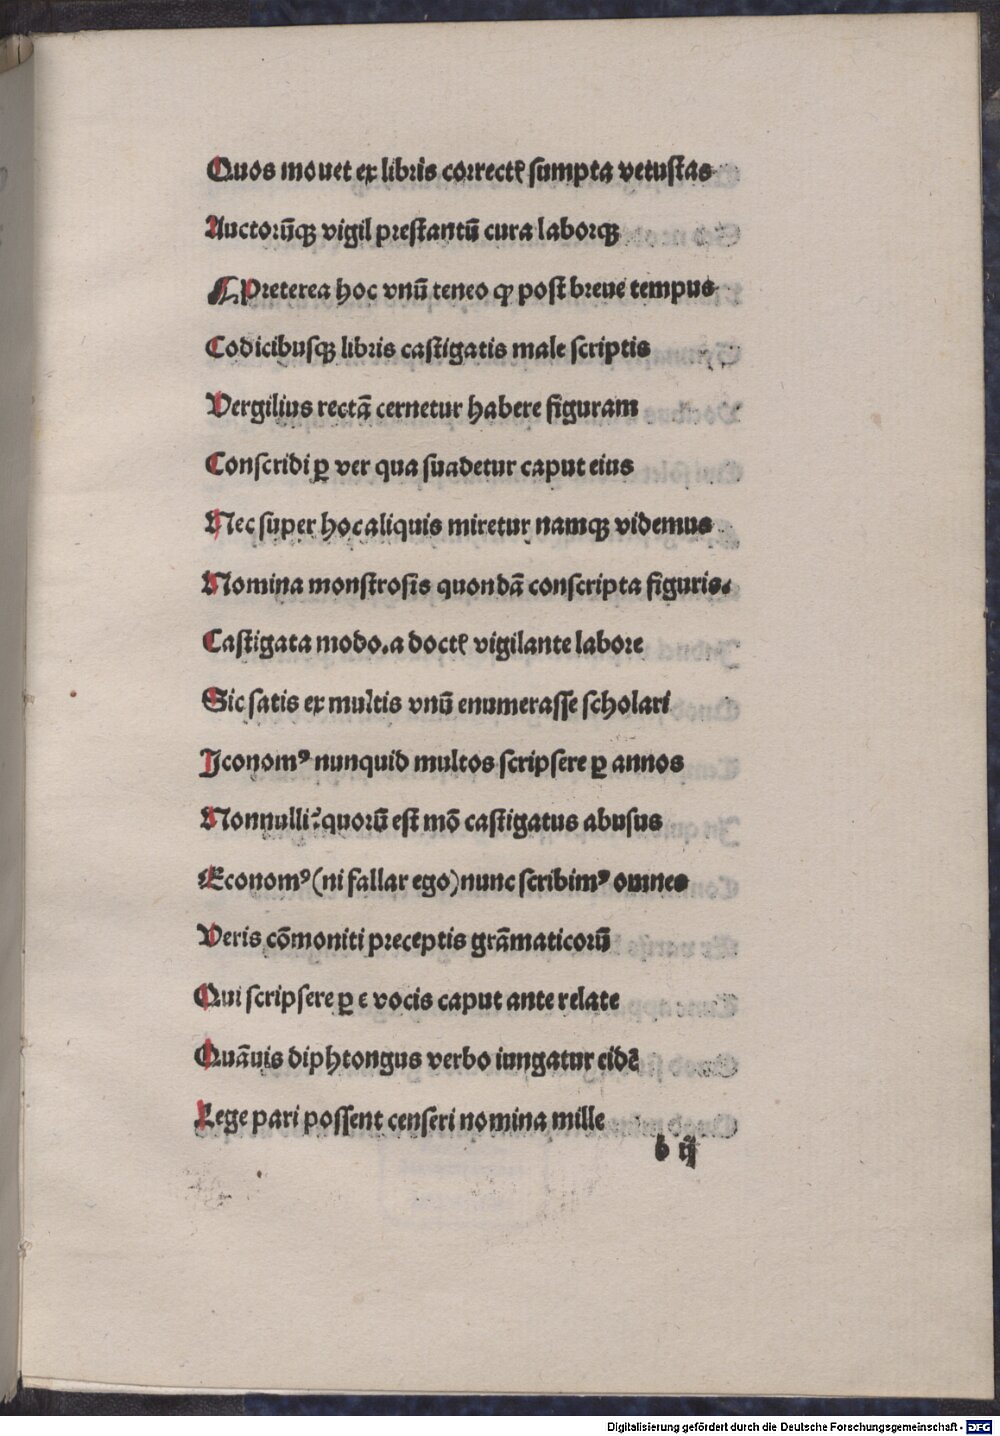 Quos mouet ex libris correctꝭ ſumpta vetuſtas
Auctorūqꝫ vigil preſtantū cura laborqꝫ
¶ Preterea hoc vnū teneo ꝙ poſt breue tempus
Codicibuſqꝫ libris caſtigatis male ſcriptis
Vergilius rectā cernetur habere figuram
Conſcridi ꝑ ver qua ſuadetur caput eius
Nec ſuper hoc aliquis miretur namqꝫ videmus
Nomina monſtroſis quondā conſcripta figuris.
Caſtigata modo.a doctꝭ vigilante labore
Sic ſatis ex multis vnū enumeraſſe ſcholari
Iconomꝰ nunquid multos ſcripſere ꝑ annos
Nonnulli?quorū eſt mō caſtigatus abuſus
Economꝰ(ni fallar ego)nunc ſcribimꝰ omnes
Veris cōmoniti preceptis grāmaticorū
Qui ſcripſere ꝑ e vocis caput ante relate
Quāuis diphtongus verbo iungatur eidē
Lege pari poſſent cenſeri nomina mille
b ij
Digitalisierung gefördert durch die Deutsche Forschungsgemeinschaft - DFG